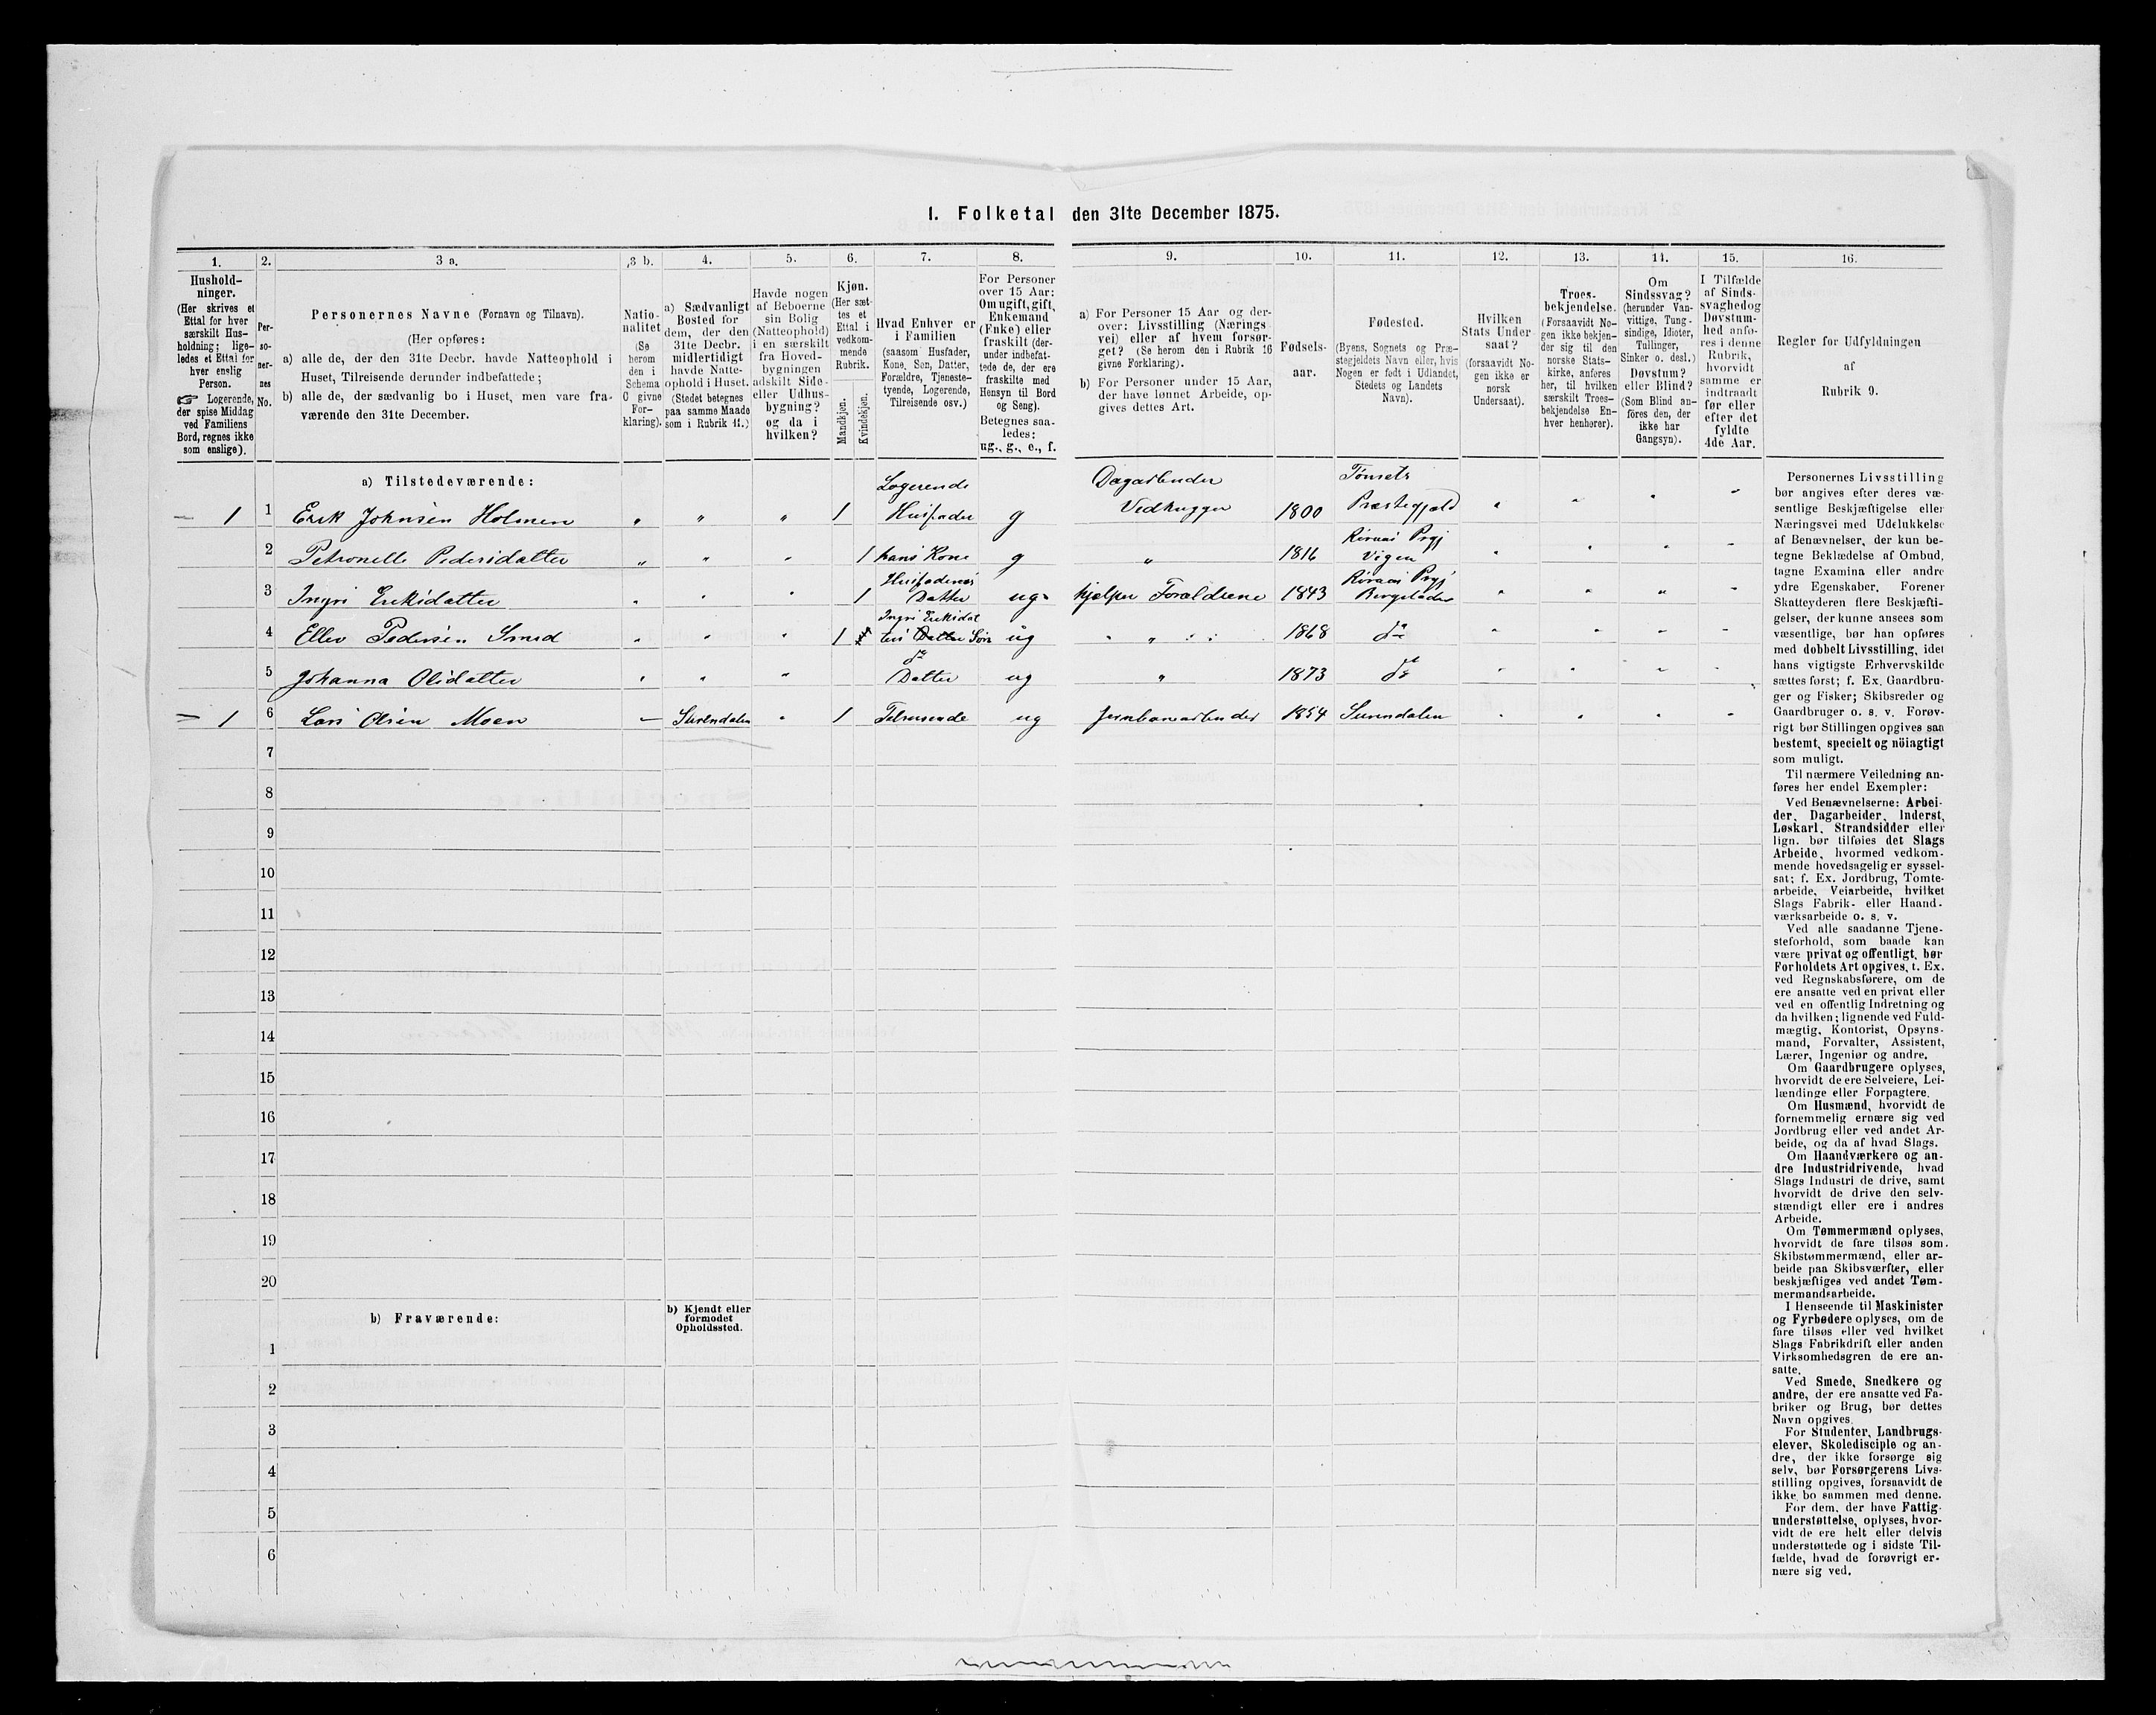 1. Folketal den 31te December 1875.
1. 2. 3 a. 3 b. 4. 5. 6. 7. 8. 9. 10. 11. 12. 13. 14. 15. 16.
Hushold-
ninger.
(Her skrives et
Ettal for hver
særskilt Hus-
holdning; lige-
ledes et Ettal for
hver enslig
Person.
☞ Logerende,
der spise Middag
ved Familiens
Bord, regnes ikke
som enslige).
Per-
so-
ner-
nes
No.
Personernes Navne (Fornavn og Tilnavn).
(Her opføres:
a) alle de, der den 31te Decbr. havde Natteophold i
Huset, Tilreisende derunder indbefattede;
b) alle de, der sædvanlig bo i Huset, men vare fra-
værende den 31te December.
Natio-
nalitet
(Se
herom
den i
Schema
C givne
For-
klaring).
a) Sædvanligt
Bosted for
dem, der den
31te Decbr.
midlertidigt
havde Natte-
ophold i Huset.
(Stedet betegnes
paa samme Maade
som i Rubrik 11.)
Havde nogen
af Beboerne
sin Bolig
(Natteophold)
i en særskilt
fra Hoved-
bygningen
adskilt Side-
eller Udhus-
bygning?
og da i
hvilken?
Kjøn.
(Her sæt-
tes et
Ettal i
vedkom-
mende
Rubrik.
Mandkjøn.
Kvindekjøn.
Hvad Enhver er
i Familien
(saasom Husfader,
Kone, Søn, Datter,
Forældre, Tjeneste-
tyende, Logerende,
Tilreisende osv.)
For Personer
over 15 Aar:
Om ugift, gift,
Enkemand
(Enke) eller
fraskilt (der-
under indbefat-
tede de, der ere
fraskilte med
Hensyn til Bord
og Seng).
Betegnes saa-
ledes:
ug., g., e., f.
a) For Personer 15 Aar og der-
over: Livsstilling (Nærings-
vei) eller af hvem forsør-
get? (Se herom den i Rubrik 16
givne Forklaring).
b) For Personer under 15 Aar,
der have lønnet Arbeide, op-
gives dettes Art.
Fødsels-
aar.
Fødested.
(Byens, Sognets og Præ-
stegjeldets Navn eller, hvis
Nogen er født i Udlandet,
Stedets og Landets
Navn).
Hvilken
Stats Under-
saat?
(forsaavidt No-
gen ikke er
norsk
Undersaat).
Troes-
bekjendelse.
(Forsaavidt No-
gen ikke bekjen-
der sig til den
norske Stats-
kirke, anføres
her, til hvilken
særskilt Troes-
bekjendelse En-
hver henhører).
Om
Sindssvag?
(herunder Van-
vittige, Tung-
sindige, Idioter,
Tullinger,
Sinker o. desl.)
Døvstum?
eller Blind?
(Som Blind an-
föres den, der
ikke har
Gangsyn).
I Tilfælde
af Sinds-
svaghed og
Døvstum-
hed anfø-
res i denne
Rubrik,
hvorvidt
samme er
indtraadt
før eller
efter det
fyldte
4de Aar.
Regler for Udfyldningen
af
Rubrik 9.
a) Tilstedeværende:
Logerende Dagarbeider Tønsets
1 1 Erik Johnsen Holmen " " " 1 Husfader g Vedhugger 1800 Præstegjæld
Røraas Prgj
2 Petronelle Pedersdatter " " " 1 hans Kone g " 1816 Vigen
Husfaderens Røraas Prgj
3 Ingri Eriksdatter " " " 1 Datter ug hjelper Forældrene 1843 Bergstaden
Ingri Eriksdat
4 Ellev Pedersen Smed " " " 1 ters Datter Søn ug " " 1868 do
do
5 Johanna Olsdatter " " " Datter ug " 1873 do
1 6 Lars Olsen Moen Surendalen " 1 Tilreisende ug Jernbanearbeider 1854 Surendalen
7
8
9
10
11
12
13
14
15
16
17
18
19
20
b) Fraværende:
b) Kjendt eller
formodet
Opholdssted.
1
2
3
4
5
6
Personernes Livsstilling
bør angives efter deres væ-
sentlige Beskjæftigelse eller
Næringsvei med Udelukkelse
af Benævnelser, der kun be-
tegne Beklædelse af Ombud,
tagne Examina eller andre
ydre Egenskaber. Forener
Skatteyderen flere Beskjæfti-
gelser, der kunne ansees som
væsentlige, bør han opføres
med dobbelt Livsstilling, idet
hans vigtigste Erhvervskilde
sættes først; f. Ex. Gaardbru-
ger og Fisker; Skibsreder og
Gaardbruger o. s. v. Forøv-
rigt bør Stillingen opgives saa
bestemt, specielt og nöiagtigt
som muligt.
Til nærmere Veiledning an-
føres her endel Exempler:
Ved Benævnelserne: Arbei-
der, Dagarbeider, Inderst,
Løskarl, Strandsidder eller
lign. bør tilføies det Slags
Arbeide, hvormed vedkom-
mende hovedsagelig er syssel-
sat; f. Ex. Jordbrug, Tomte-
arbeide, Veiarbeide, hvilket
Slags Fabrik- eller Haand-
værksarbeide o. s. v.
Ved alle saadanne Tjene-
steforhold, som baade kan
være privat og offentligt, bør
Forholdets Art opgives, t. Ex.
ved Regnskabsførere, om de
ere ansatte ved en privat eller
ved en offentlig Indretning og
da hvilken; lignende ved Fuld-
mægtig, Kontorist, Opsyns-
mand, Forvalter, Assistent,
Lærer, Ingeniør og andre.
Om Gaardbrugere oplyses,
hvorvidt de ere Selveiere, Lei-
lændinge eller Forpagtere.
Om Husmænd, hvorvidt de
fornemmelig ernære sig ved
Jordbrug eller ved andet Ar-
beide, og da af hvad Slags.
Om Haandværkere og an-
dre Industridrivende, hvad
Slags Industri de drive, samt
hvorvidt de drive den selv-
stændigt eller ere i andres
Arbeide.
Om Tømmermænd oplyses,
hvorvidt de fare tilsøs som
Skibstømmermænd, eller ar-
beide paa Skibsværfter, eller
beskjæftiges ved andet Tøm-
mermandsarbeide.
I Henseende til Maskinister
og Fyrbødere oplyses, om de
fare tilsøs eller ved hvilket
Slags Fabrikdrift eller anden
Virksomhedsgren de ere an-
satte.
Ved Smede, Snedkere og
andre, der ere ansatte ved Fa-
briker og Brug, bør dettes
Navn opgives.
For Studenter, Landbrugs-
elever, Skoledisciple og an-
dre, der ikke forsørge sig
selv, bør Forsørgerens Livs-
stilling opgives, forsaavidt de
ikke bo sammen med denne.
For dem, der have Fattig-
understøttelse, oplyses, hvor-
vidt de ere helt eller delvis
understøttede og i sidste Til-
fælde, hvad de forøvrigt er-
nære sig ved.